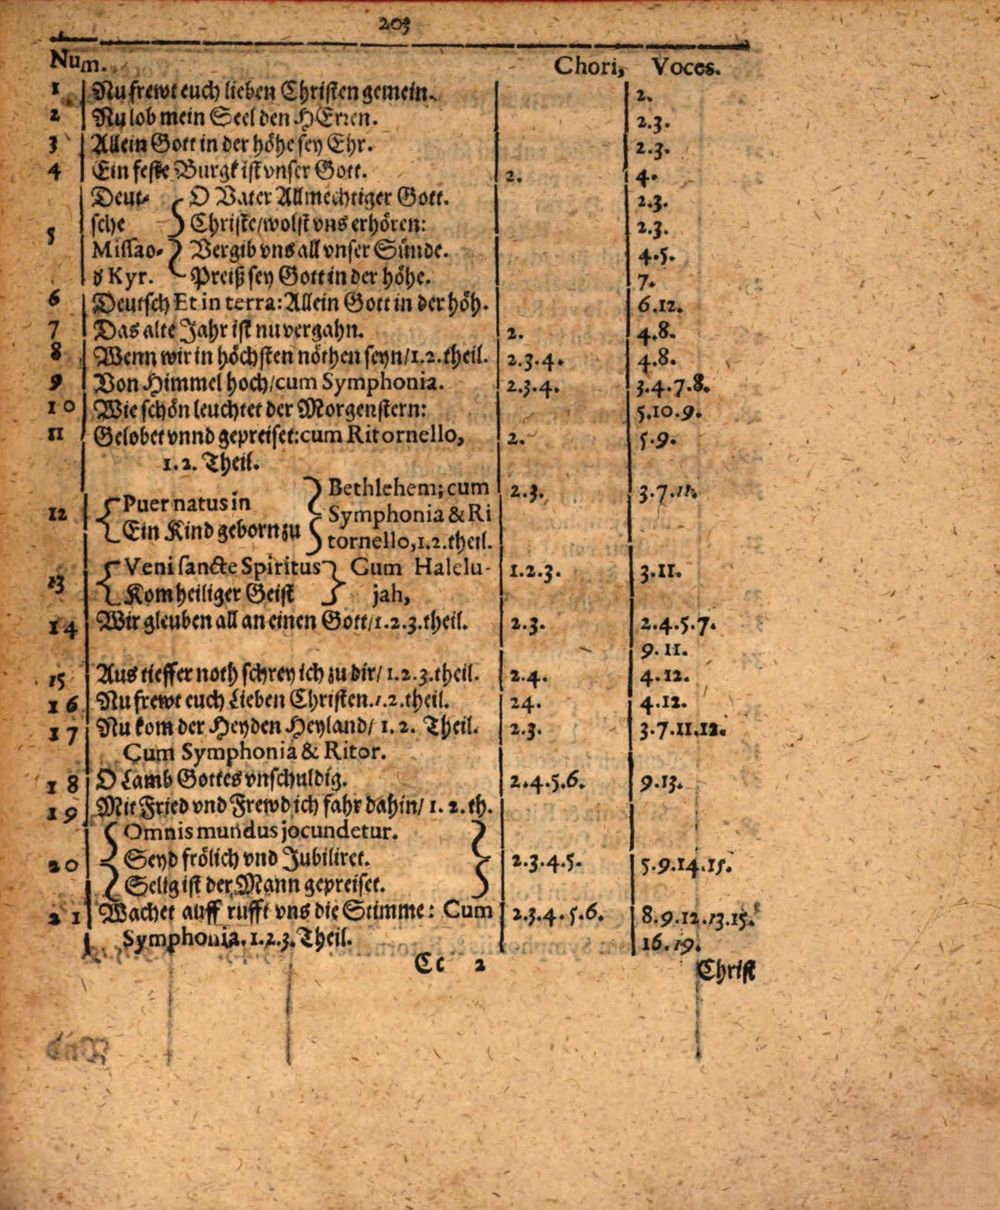 203
Num. Chori, Voces.
1 Nu frewt euch lieben Christen gemein. 2.
2 Nu lob mein Seel den HErren. 2.3.
3 Allein Gott in der höhe sey Ehr. 2.3.
4 Ein feste Burgk ist vnser Gott. 2. 4.
Deut- O Vater Allmechtiger Gott. 2.3.
5 sche Christe/wolst vns erhören: 2.3.
Missa o- Vergib vns all vnser Sünde. 4.5.
d Kyr. Preiß sey Gott in der höhe. 7.
6 Deutsch Et in terra: Allein Gott in der höh. 6.12.
7 Das alte Jahr ist nu vergahn. 2. 4.8.
8 Wenn wir in höchsten nöthen seyn/1.2.theil. 2.3.4. 4.8.
9 Von Himmel hoch/cum Symphonia. 2.3.4. 3.4.7.8.
10 Wie schön leuchtet der Morgenstern: 5.10.9.
11 Gelobet vnnd gepreiset: cum Ritornello, 2. 5.9.
1.2. Theil.
12 Puer natus in Bethlehem; cum 2.3. 3.7.11.
Ein Kind geborn zu Symphonia & Ri
tornello, 1.2.theil.
13 Veni sancte Spiritus Cum Halelu- 1.2.3. 3.11.
Kom heiliger Geist jah,
14 Wir gleuben all an einen Gott/1.2.3.theil. 2.3. 2.4.5.7.
9.11.
15 Aus tieffer noth schrey ich zu dir/1.2.3.theil. 2.4. 4.12.
16 Nu frewt euch Lieben Christen.1.2.theil. 24. 4.12.
17 Nu kom der Heyden Heyland/ 1.2. Theil. 2.3. 3.7.11.12.
Cum Symphonia & Ritor.
18 O Lamb Gottes vnschuldig. 2.4.5.6. 9.13.
19 Mit Fried vnd Frewd ich fahr dahin/ 1.2.th.
Omnis mundus jocundetur.
20 Seyd frölich vnd Jubiliret. 2.3.4.5. 5.9.14.15.
Selig ist der Mann gepreiset.
21 Wachet auff rufft vns die Stimme: Cum 2.3.4.5.6. 8.9.12.13.15.
Symphonia. 1.2.3. Theil. 16.19.
Cc 2 Christ